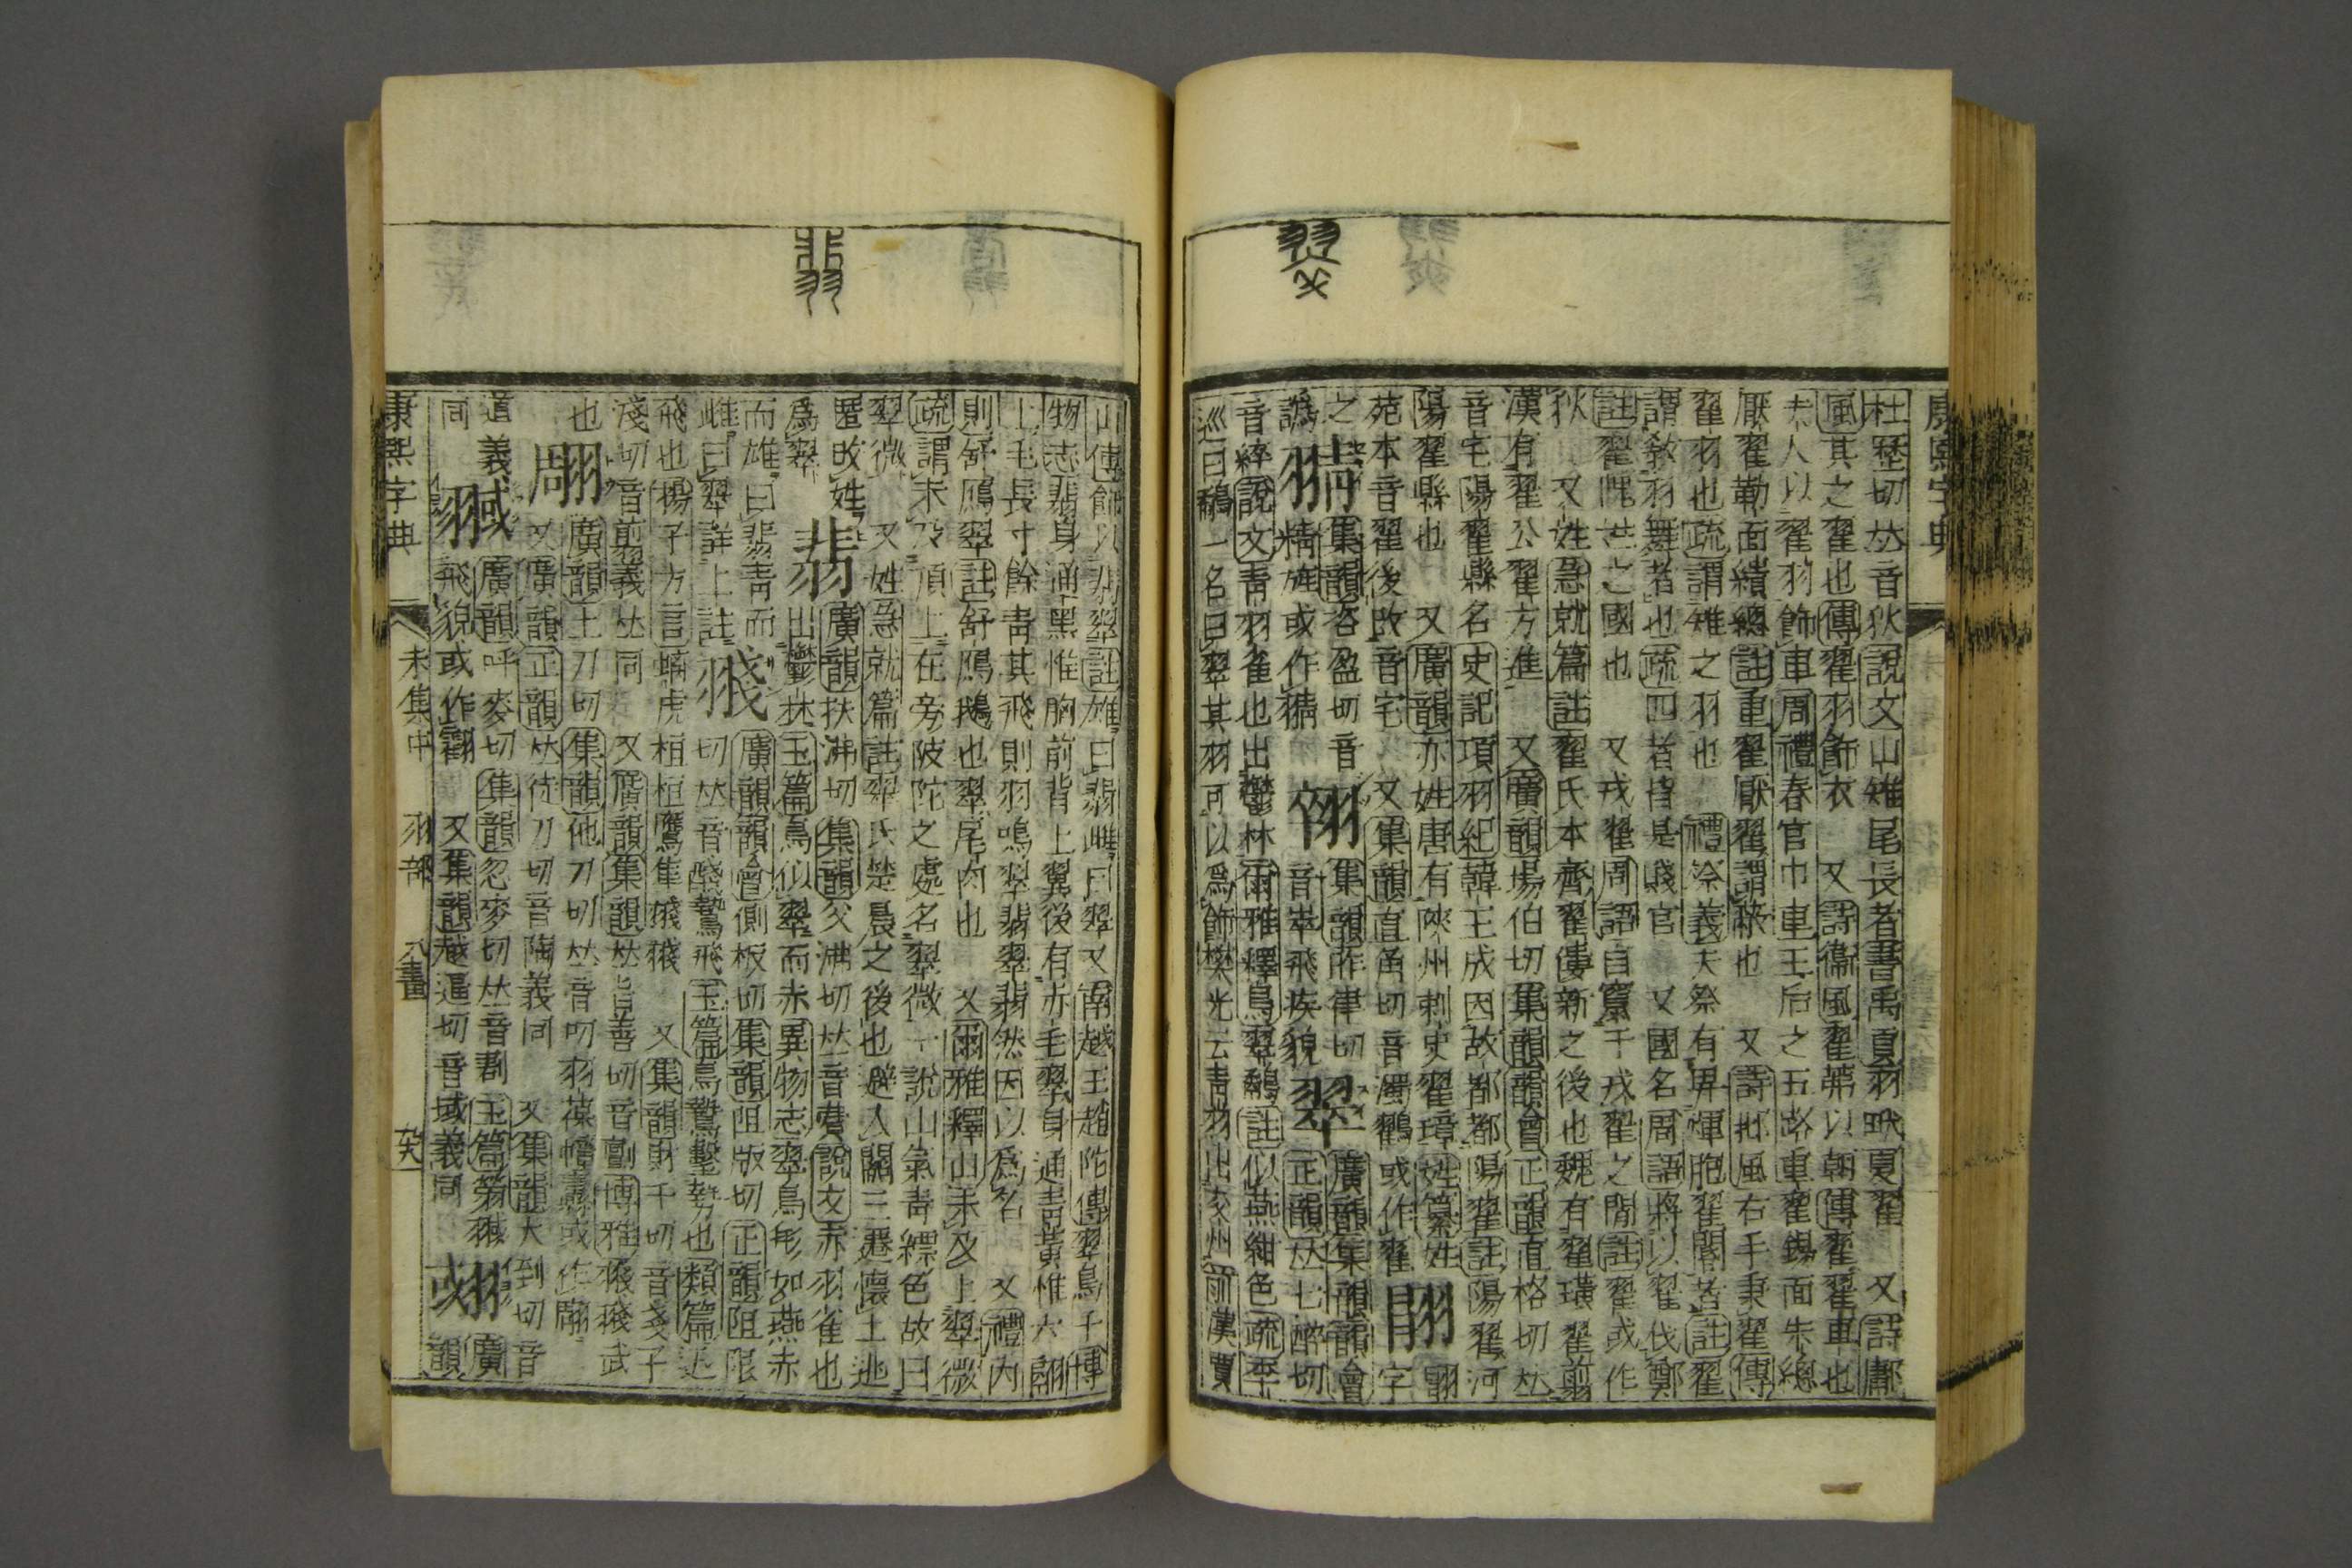 康熙字典
杜歷切𠀤音狄說文山雉尾長者書禹貢羽畎夏翟 又詩鄘
風其之翟也傳翟羽飾衣 又詩衞風翟茀以朝傳翟翟車也
夫人以翟羽飾車周禮春官巾車王后之五路重翟鍚面朱總
厭翟勒面繢總註重翟厭翟謂蔽也 又詩邶風右手秉翟傳
翟羽也疏謂雉之羽也 禮祭義夫祭有畀煇胞翟閽者註翟
謂敎羽舞者也疏四者皆是賤官 又國名周語將以翟伐鄭
註翟隗姓之國也 又戎翟周語自竄于戎翟之閒註翟或作
狄 又姓急就篇註翟氏本齊翟僂新之後也魏有翟璜翟翦
漢有翟公翟方進 又廣韻場伯切集韻韻會正韻直格切𠀤
音宅陽翟縣名史記項羽紀韓王成因故都都陽翟註陽翟河
陽翟縣也 又廣韻亦姓唐有陝州刺史翟璋姓纂姓
苑本音翟後改音宅 又集韻直角切音濁鸐或作翟 䎕 翾字
之
譌 䎖 集韻咨盈切音
精旌或作䎖 䎜 集韻昨律切
音崒飛疾貌 翠 廣韻集韻韻會
正韻𠀤七醉切
音綷說文靑羽雀也出鬱林爾雅釋鳥翠鷸註似燕紺色疏李
巡曰鷸一名曰翠其羽可以爲飾樊光云靑羽出交州前漢賈
山傳飾以翡翠註雄曰翡雌曰翠又南越王趙陀傳翠鳥千博
物志翡身通黑惟胸前背上翼後有赤毛翠身通靑黃惟六翮
上毛長寸餘靑其飛則羽鳴翠翡翠翡然因以爲名 又禮內
則舒鴈翠註舒鴈鵝也翠尾肉也 又爾雅釋山未及上翠微
疏謂未及頂上在旁陂陀之處名翠微一說山氣靑縹色故曰
翠微 又姓急就篇註翠氏楚景之後也避入關三遷懷土逃
匿改姓
爲翠 翡 廣韻扶沸切集韻父沸切𠀤音䠊說文赤羽雀也
出鬱林玉篇鳥似翠而赤異物志翠鳥形如燕赤
而雄曰翡靑而
雌曰翠詳上註 䎒 廣韻韻會側板切集韻阻版切正韻阻限
切𠀤音醆鷙飛玉篇鳥鷙擊勢也類篇迅
飛也揚子方言螭虎桓桓鷹隼䎒䎒 又集韻財干切音戔子
淺切音翦義𠀤同 又廣韻集韻𠀤旨善切音劗博雅䎒䎒武
也 翢 廣韻土刀切集韻他刀切𠀤音叨羽葆幢纛或作翿
又廣韻正韻𠀤徒刀切音陶義同 又集韻大到切音
道義
同 䎉 廣韻呼麥切集韻忽麥切𠀤音劃玉篇翁䎉
飛貌或作翽 又集韻越逼切音域義同 䎀 廣
韻
康熙字典 未集中 羽部 八畫